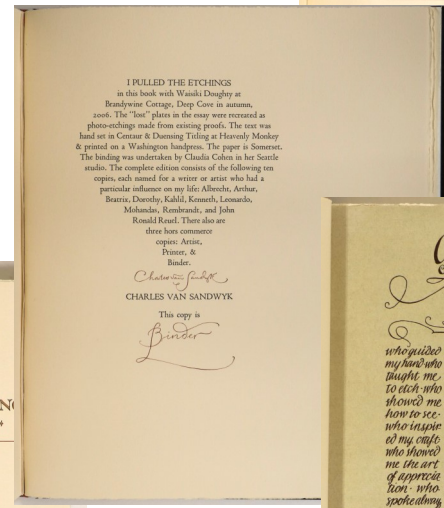 I PULLED THE ETCHINGS
in this book with Waisiki Doughty at
Brandywine Cottage, Deep Cove in autumn,
2006. The "lost" plates in the essay were recreated as
photo-etchings made from existing proofs. The text was
hand set in Centaur & Duensing Titling at Heavenly Monkey
& printed on a Washington handpress. The paper is Somerset.
The binding was undertaken by Claudia Cohen in her Seattle
studio. The complete edition consists of the following ten
copies, each named for a writer or artist who had a
particular influence on my life: Albrecht, Arthur,
Beatrix, Dorothy, Kahlil, Kenneth, Leonardo,
Mohandas, Rembrandt, and John
Ronald Reuel. There also are
three hors commerce
copies: Artist,
Printer, &
Binder.
Charles van Sandwyk
CHARLES VAN SANDWYK
This copy is
Binder
who guided
my hand who
taught me
to etch · who
showed me
how to see ·
who inspir
ed my craft
who showed
me the art
of apprecia
tion · who
spoke alway